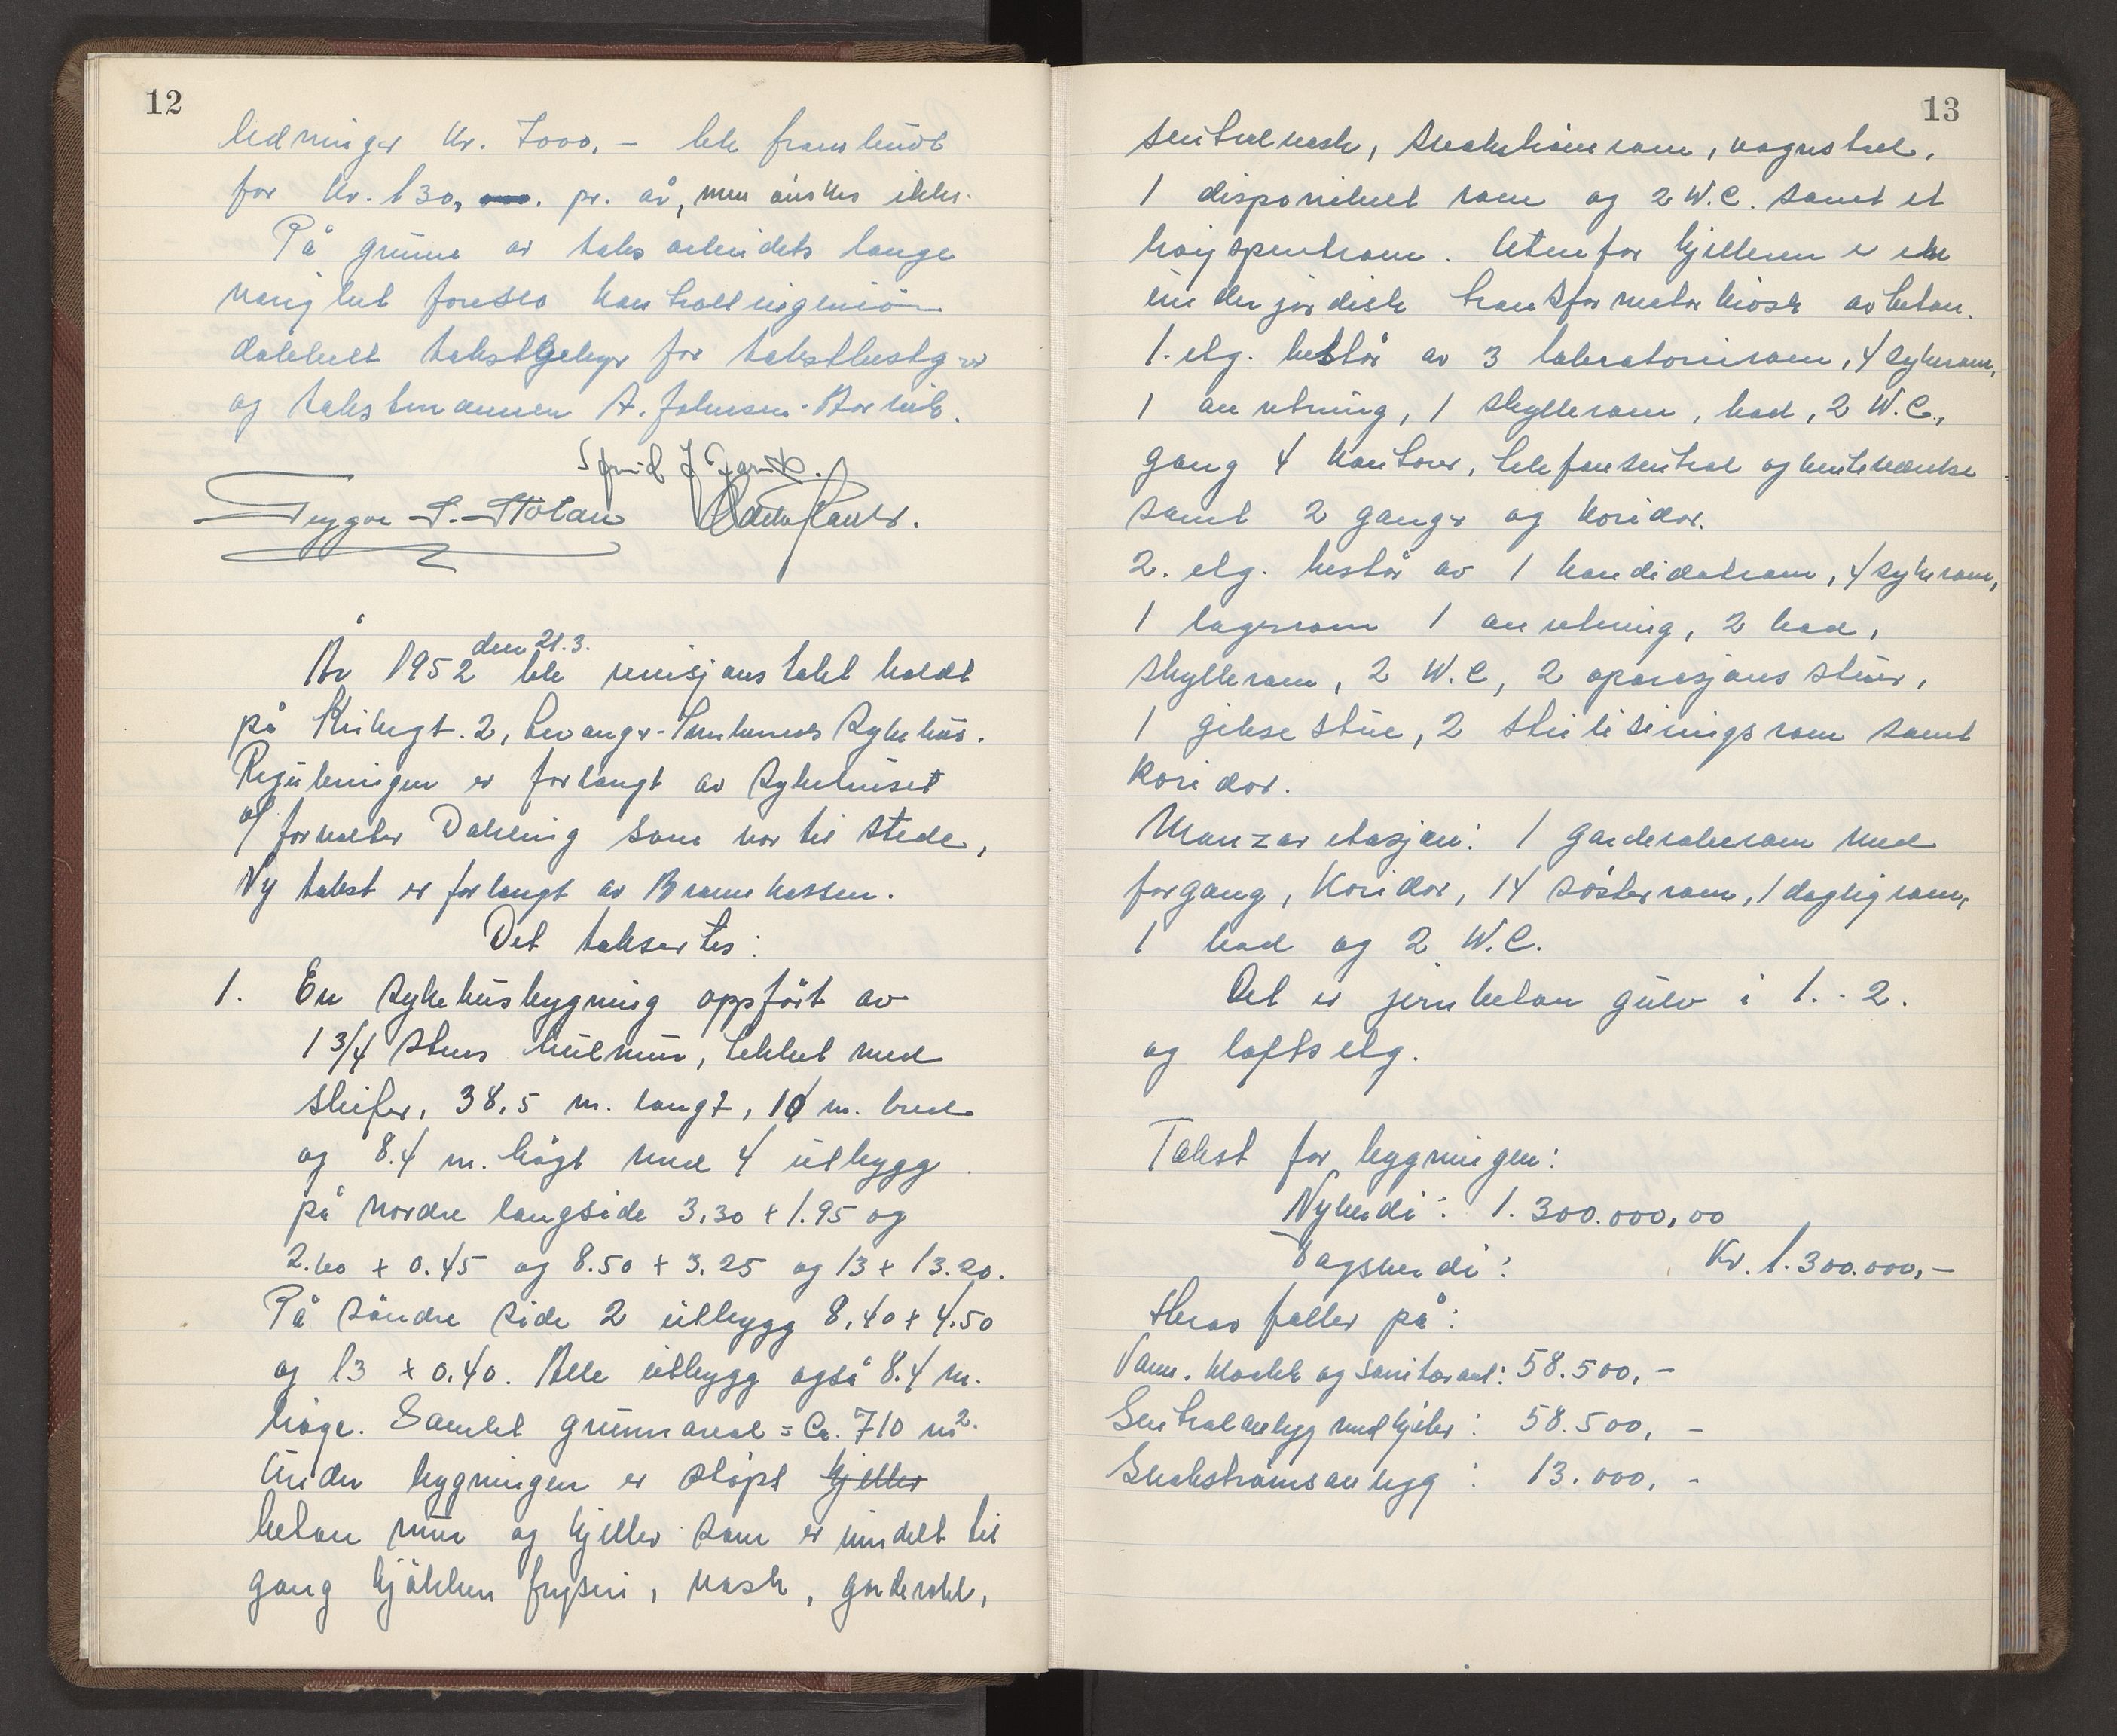 12
ledninger Kr. 7000,- ble frambudt
for Kr. 130, pr. år, men ønskes ikke.
På grunn av takstarbeidets lange
varighet foreslo kontrollingeniør
dobbelt takstgebyr for takstbestyrer
og takstmannen A. Johnsen-Borkik.
Trygve S. Stölan
År 1952 den 21.3. ble revisjonstakst holdt
på Kirkegt. 2, Levanger-Innherreds Sykehus.
Reguleringen er forlangt av Sykehuset
v/ forvalter Dahling som var til stede,
Ny takst er forlangt av Brannkassen.
Det taksertes:
1. En sykehusbygning oppfört av
1 3/4 stens hulmur, tekket med
skifer, 38,5 m. langt, 10 m. bred
og 8.4 m. høgt med 4 utbygg
på nordre langside 3,30 x 1.95 og
2.60 x 0.45 og 8.50 x 3.25 og 13 x 13.20.
På söndre side 2 utbygg 8,40 x 4.50
og 13 x 0,40. Alle utbygg også 8.4 m.
høge. Samlet grunnareal = Ca. 710 m².
Under bygningen er støpt kjeller
beton mur og kjeller som er inndelt til
gang kjökken fryseri, vask, garderobe,
13
sentralvask, svakströmrom, vognstal,
1 disponibelt rom og 2 W.C. samt et
høyspentrom. Utenfor kjelleren er en
underjordisk transformatorkiosk av beton.
1. etg. består av 3 laboratorierom, 4 sykerom,
1 anretning, 1 skyllerom, bad, 2 W.C.,
gang 4 kontorer, telefonsentral og venteværelse
samt 2 ganger og koridor.
2. etg. består av 1 kandidatrom, 4 sykerom,
1 lagerrom 1 anretning, 2 bad,
skyllerom, 2 W.C, 2 operasjons stuer,
1 gibsestue, 2 steriliseringsrom samt
koridor.
Manzaretasjen: 1 garderoberom med
forgang, Koridor, 14 söster rom, 1 dagligrom,
1 bad og 2 W.C.
Det er jernbeton gulv i 1. - 2.
og lofts etg.
Takst for bygningen:
Nyverdi: 1.300.000,00
Dagsverdi: Kr. 1.300.000,-
Herav faller på:
Vann, kloakk og sanitæranl: 58.500,-
Sentralanlegg med kjeler: 58.500,-
Svakströmsanlegg: 13.000,-